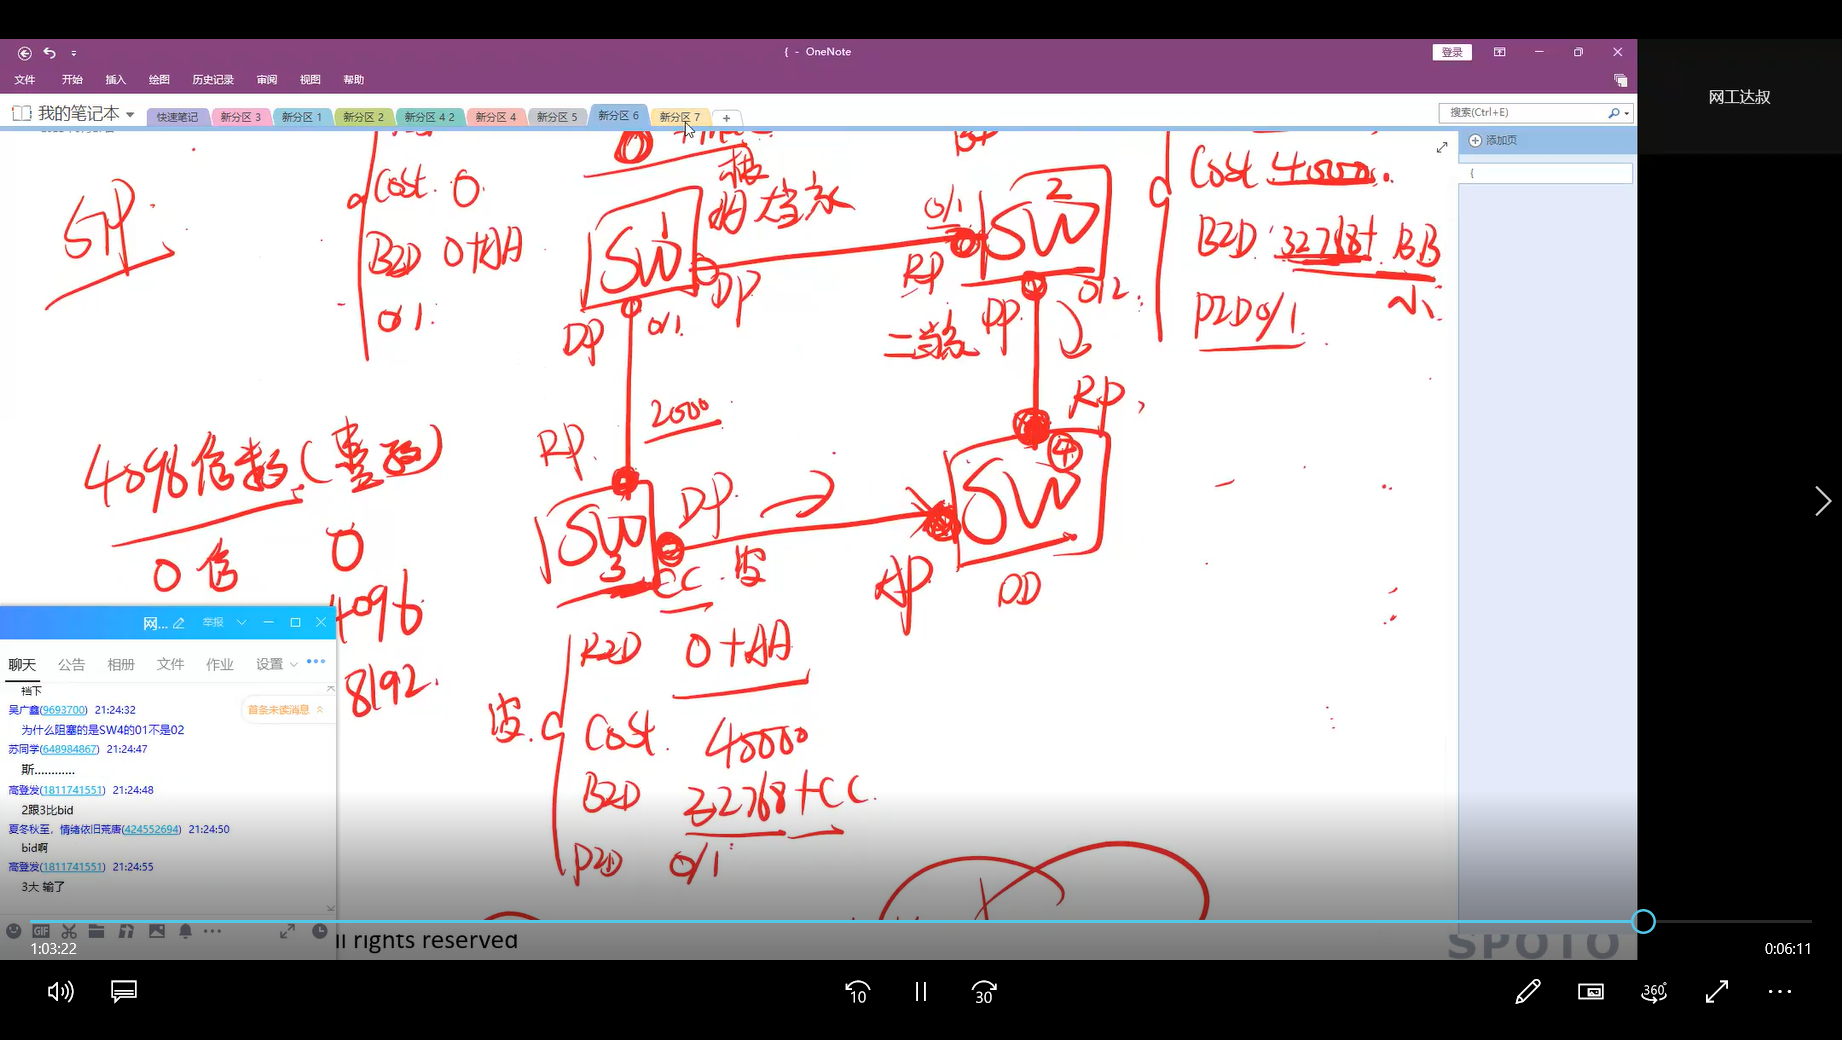 { - OneNote
登录
文件 开始 插入 绘图 历史记录 审阅 视图 帮助
我的笔记本
快速笔记 新分区 3 新分区 1 新分区 2 新分区 4 2 新分区 4 新分区 5 新分区 6 新分区 7 +
搜索(Ctrl+E)
网工达叔
添加页
{
Cost. 0
B2D 0+AA
0/1.
SW1
DP
DP
0/1.
0/1
SW2
RP
DP
0/2
Cost 40000.
B2D 32768+BB
小
P2D0/1
RP
20000
RP
4096倍数(
0倍
0
4096
8192
SW3
DP
CC
SW
④
AP
DD
R2D 0+AA
Cost. 40000
B2D 32768+CC
P2D 0/1
网... 举报
聊天 公告 相册 文件 作业 设置
档下
首条未读消息
吴广鑫(9693700) 21:24:32
为什么阻塞的是SW4的01不是02
苏同学(648984867) 21:24:47
斯............
高登发(1811741551) 21:24:48
2跟3比bid
夏冬秋至，情绪依旧荒唐(424552694) 21:24:50
bid啊
高登发(1811741551) 21:24:55
3大 输了
GIF
ll rights reserved
SPOTO
1:03:22
0:06:11
10
30
360°